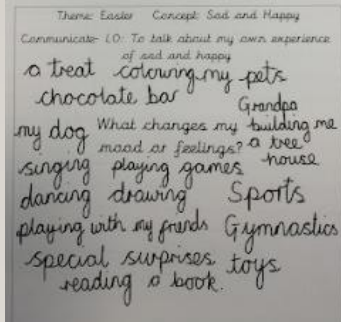 Theme: Easter Concept: Sad and Happy
Communicate- LO: To talk about my own experience
of sad and happy
a treat colouring my pets
chocolate bar
Grandpa
my dog What changes my building me
mood or feelings? a tree
house
singing playing games
dancing drawing Sports
playing with my friends Gymnastics
special surprises toys
reading a book.